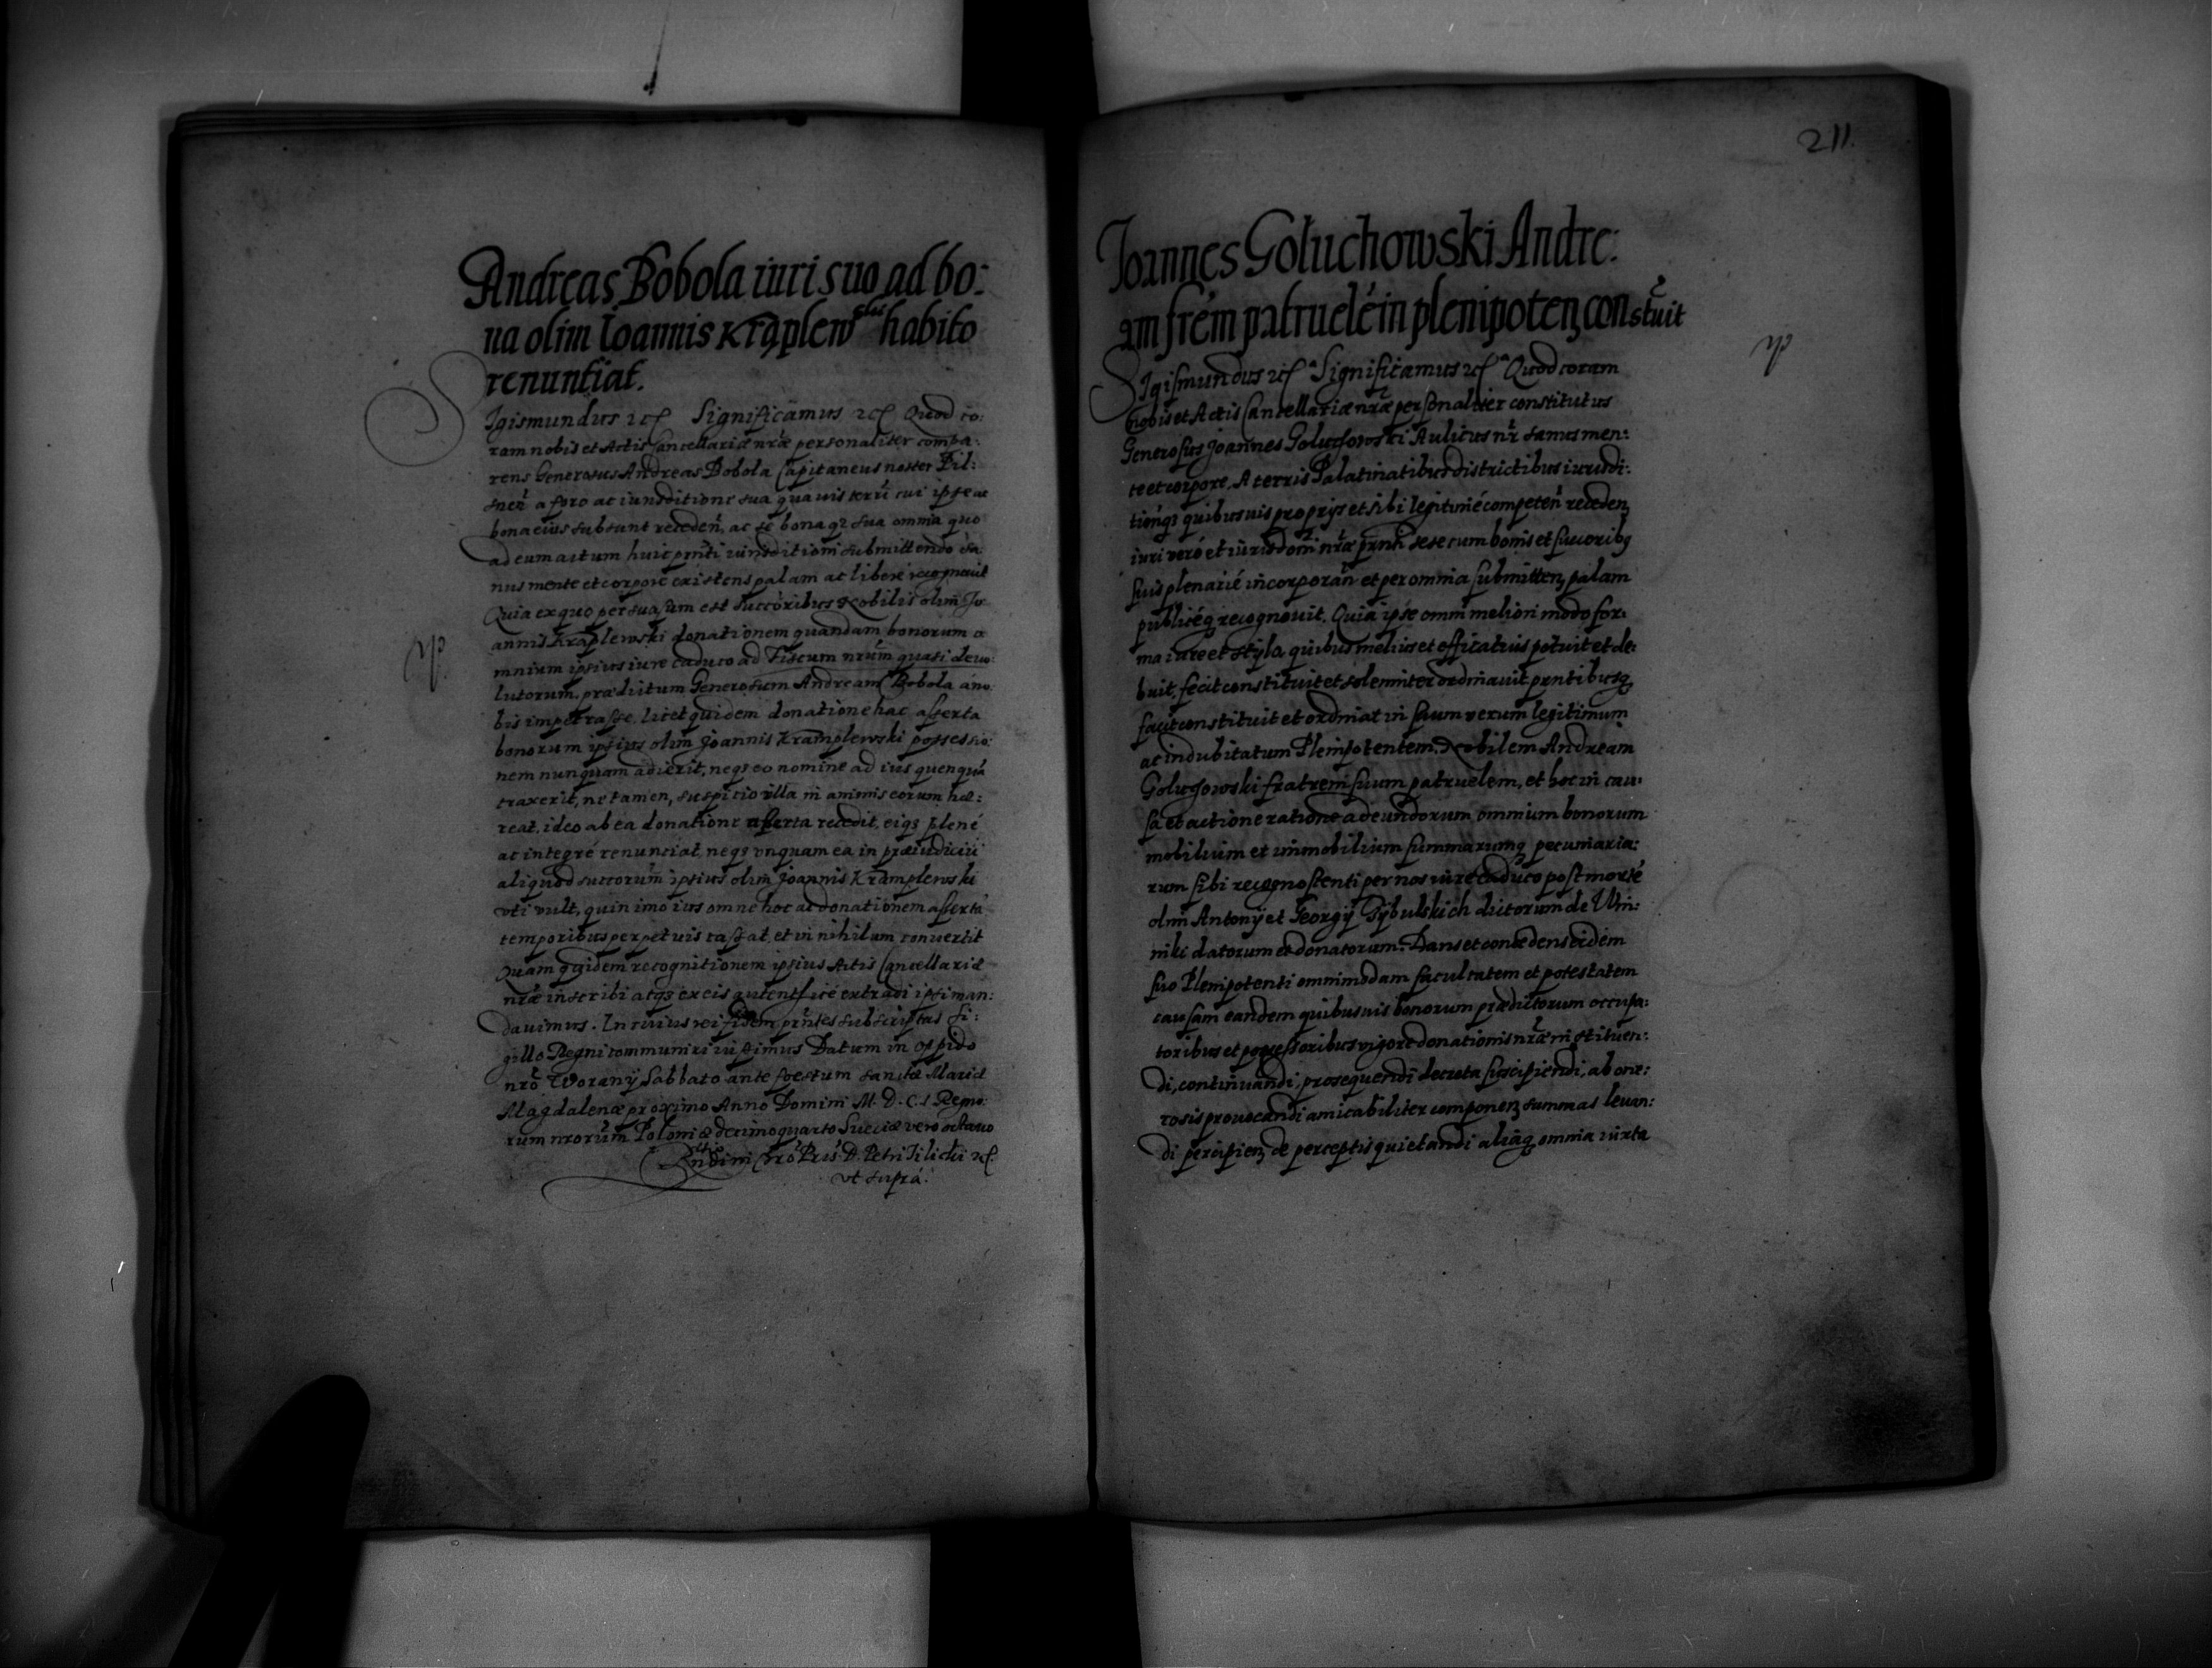 Andreas Bobola iuri suo ad bo:
na olim Ioannis Krąplew^ski habito
renuntiat.
Sigismundus etc Significamus etc Quod co:
ram nobis et Actis Cancellariæ nr̃æ personaliter compa:
rens Generosus Andreas Bobola Capitaneus noster Pil:
snen̄ a foro ac iurisditione sua quavis terr̃i cui ipse ac
bona eius subsunt receden̄, ac se bona qz sua omnia quo
ad eum actum huic pn̄ti iurisditioni submittendo sa:
nus mente et corpore existens palam ac libere recognovit
Quia ex quo persuasum est succoribus Nobilis olim Jo
annis Kraplewski donationem quandam bonorum o
mnium ipsius iure caduco ad Fiscum nr̃um quasi devo:
lutorum, prædictum Generosum Andream Bobola a no
bis impetrasse, licet quidem donatione hac asserta
bonorum ipsius olim Joannis Kramplewski possessio:
nem nunquam adierit, neqz eo nomine ad ius quenquā
traxerit, ne tamen, suspitio illa in animis eorum hæ:
reat, ideo ab ea donatione asserta recedit, eiqz plené
ac integré renunciat, neqz vnquam ea in præiudiciū
aliquod succorum̄ ipsius olim Joannis Kramplewski
vti vult, quin imo ius omne hoc ac donationem assertā
temporibus perpetuis cassat, et in nihilum convertit
Quam quidem recognitionem ipsius Actis Cancellariæ
nr̃æ inscribi atqz ex eis autenticé extradi ipsi man:
davimus. In cuius rei fidem pn̄tes subscriptas si:
gillo Regni communiri iussimus Datum in oppido
nrõ Worany Sabbato ante foestum sanctæ Mariæ
Magdalenæ proximo Anno Domini M.D.C.I Regno:
rum nrorũm Poloniæ decimoquarto Sueciæ vero octavo
Pris D. Petri Tilicki etc
vt supra.
211.
Joannes Gołuchowski Andre:
am frēm patruelē in plenipoteñ constuit
Sigismundus etc Significamus etc Quod coram
nobis et Actis Cancellariæ nr̃æ personaliter constitutus
Generosus Joannes Goluchowski Aulicus nr̃ sanus men:
te et corpore. A terris Palatinatibus districtibus iurisdi:
tionqz quibusvis proprijs et sibi legitimé competen̄ receden̄
iuri veró et iurisdoni nr̃æ pn̄ti sese cum bonis et succoribq
suis plenarié incorporan̄ et per omnia submitten̄ palam
publicéq recognovit. Quia ipse omni meliori modo for:
ma iure et stylo, quibus melius et efficatius potuit et de:
buit, fecit constituit et solenniter ordinavit pn̄tibusq
facit constituit et ordinat in suum verum legitimum
ac indubitatum Plenipotentem, Nobilem Andream
Goluchowski fratrem suum patruelem, et hoc in cau:
sa et actione ratione adeundorum omnium bonorum
mobilium et immobilium summarumq pecuniaria:
rum sibi recognoscenti per nos iure caduco post mortē
olim Antonij et Georgij Pybulskich dictorum de Win:
niki datorum et donatorum. Dans et concedens eidem
suo Plenipotenti omnimodam facultatem et potestatem
causam eandem quibusvis bonorum prædictorum occupa:
toribus et possessoribus vigore donationis nr̃æ instituen:
di, continuandi, prosequendi decreta suscipiendi, ab one:
rosis provocandi amicabiliter componen̄ summas levan:
di percipien̄ de perceptis quietandi aliaq omnia iuxta